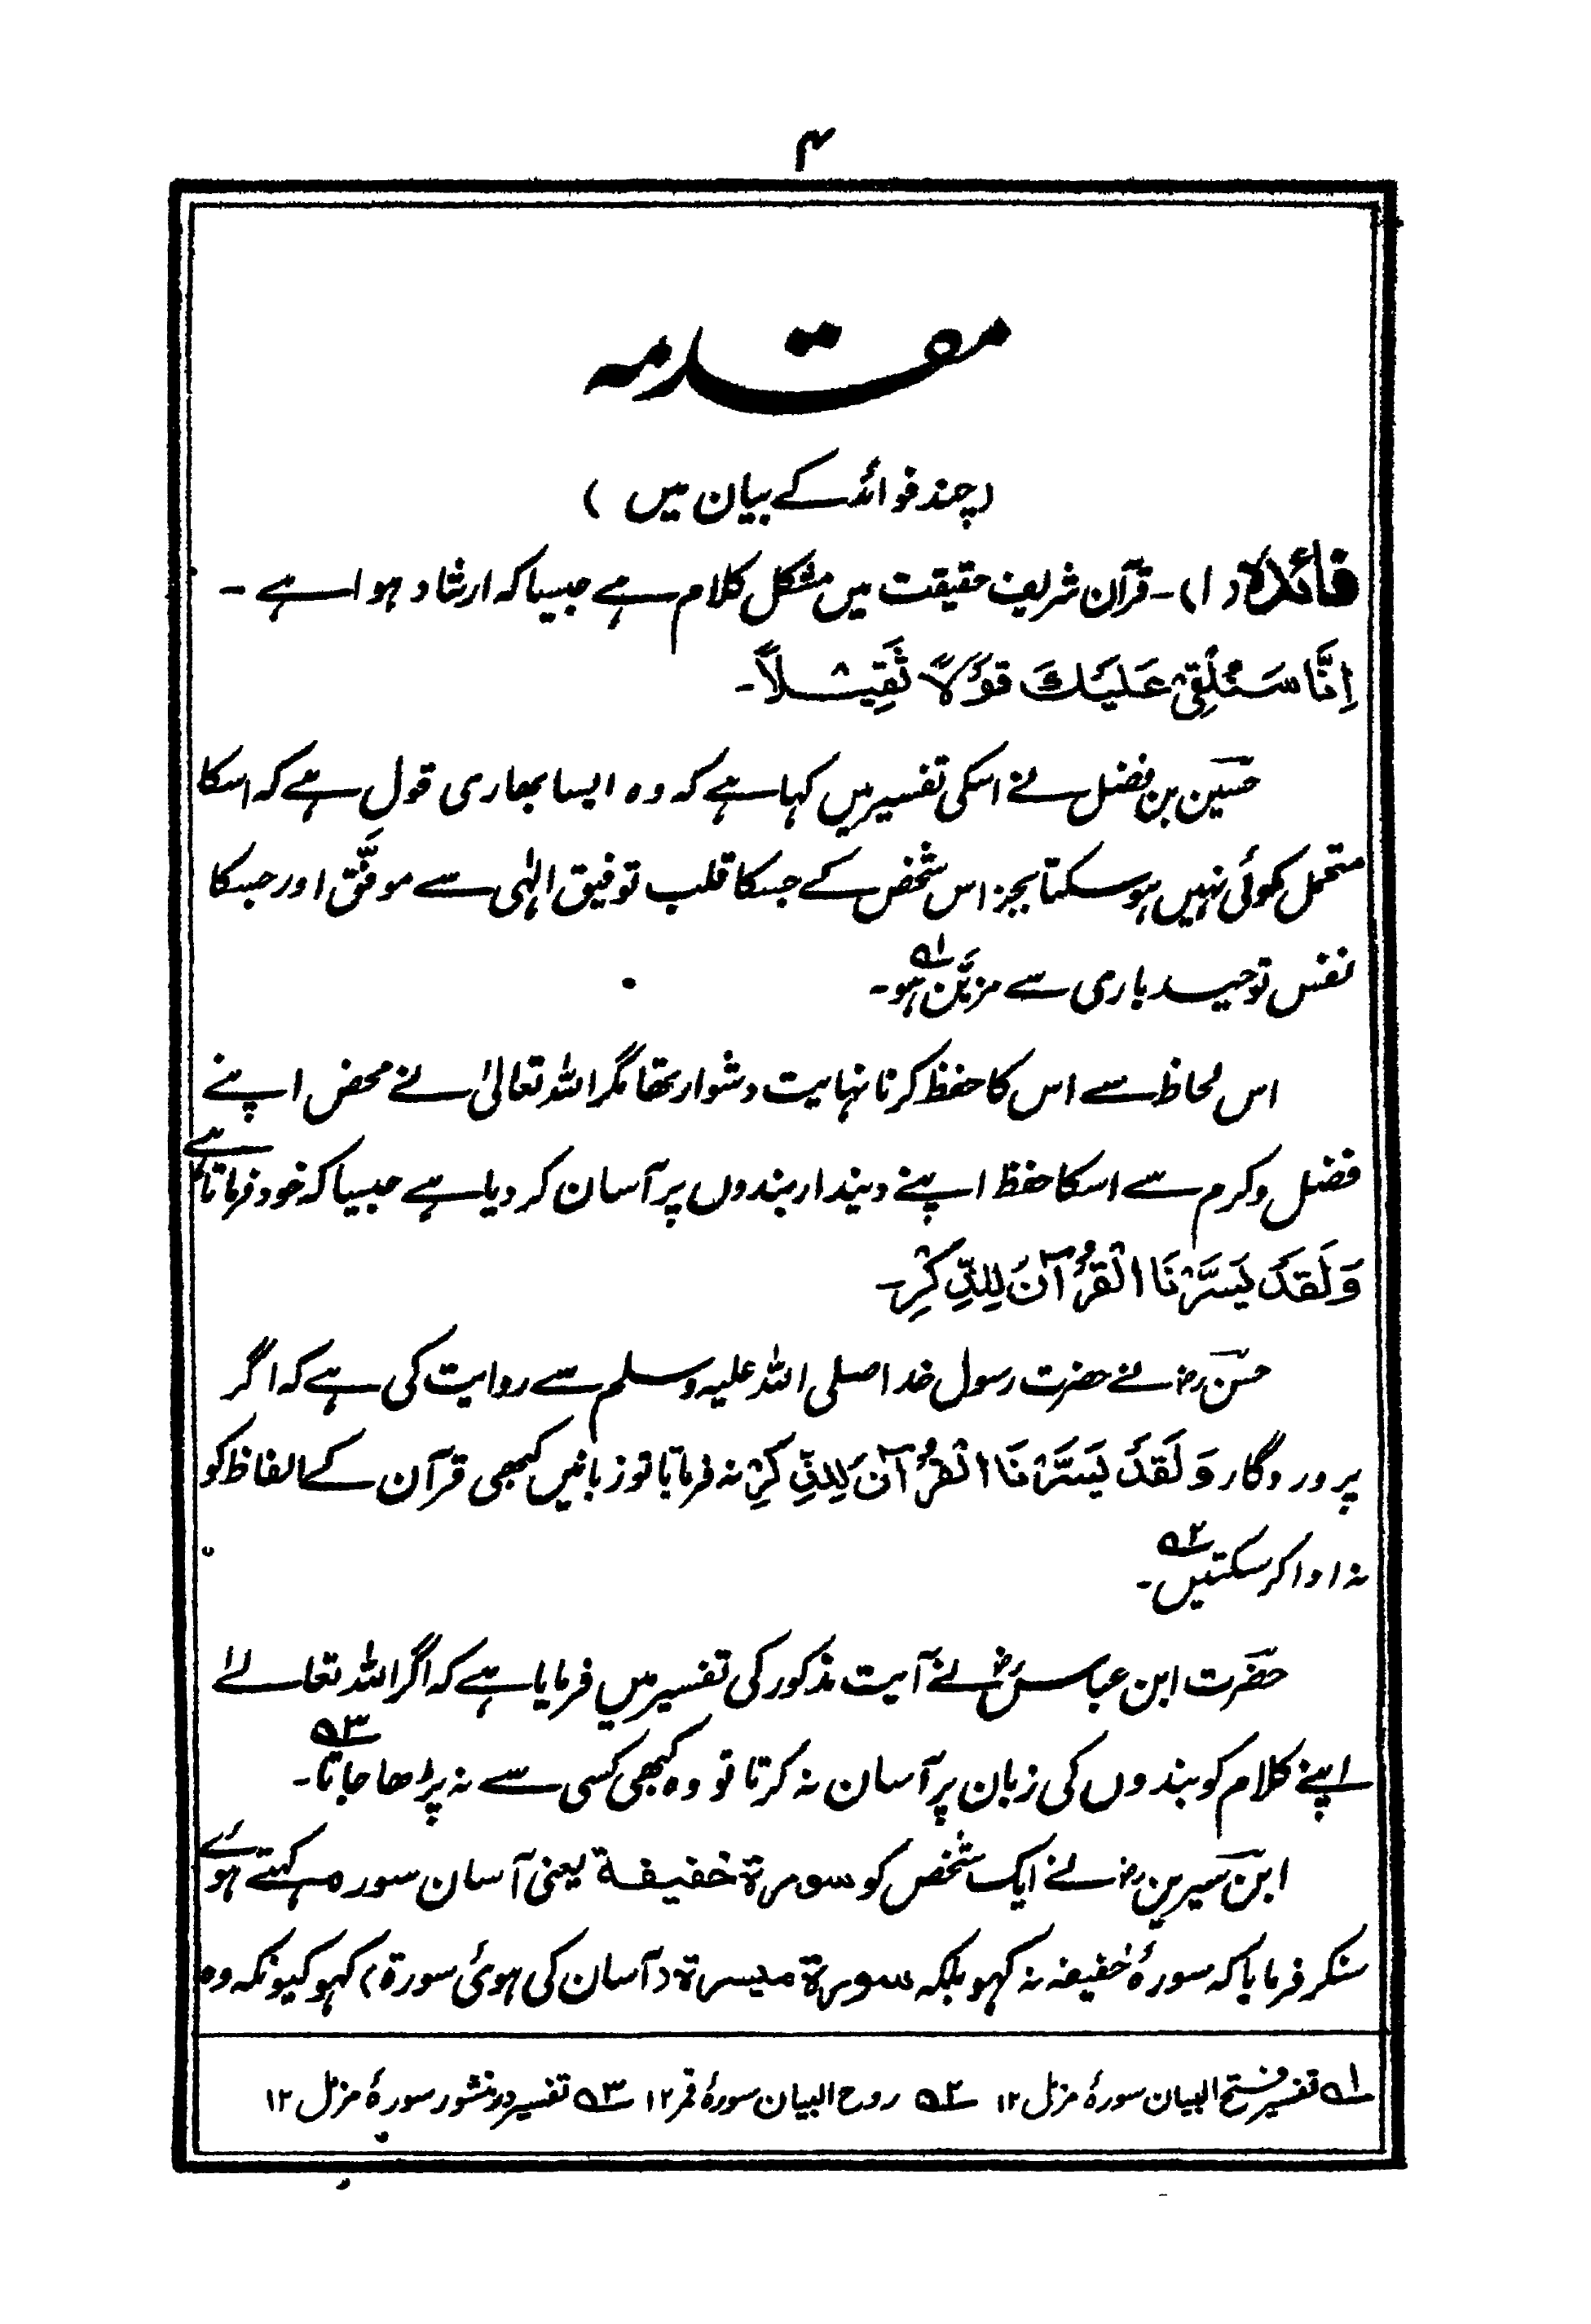 ۴
مقدمہ
(چند فوائد کے بیان میں)
فائدہ (۱)۔ قرآن شریف حقیقت میں مشکل کلام ہے جیسا کہ ارشاد ہوا ہے۔
اِنَّا سَنُلْقِیْ عَلَیْكَ قَوْلًا ثَقِیْلاً۔
حسین بن فضل نے اسکی تفسیر میں کہا ہے کہ وہ ایسا بھاری قول ہے کہ اسکا
متحمل کوئی نہیں ہو سکتا بجز اس شخص کے جسکا قلب توفیق الٰہی سے موفَّق اور جسکا
نفس توحید باری سے مزیَّن ہو۔ ؎۱
اس لحاظ سے اس کا حفظ کرنا نہایت دشوار تھا مگر اللہ تعالیٰ نے محض اپنے
فضل و کرم سے اسکا حفظ اپنے دیندار بندوں پر آسان کر دیا ہے جیسا کہ خود فرماتا ہے
وَلَقَدْ یَسَّرْنَا الْقُرْآنَ لِلذِّکْرِ۔
حسن رضؓ نے حضرت رسول خدا صلی اللہ علیہ وسلم سے روایت کی ہے کہ اگر
پروردگار وَلَقَدْ یَسَّرْنَا الْقُرْآنَ لِلذِّکْرِ نہ فرماتا تو زبانیں کبھی قرآن کے الفاظ کو
نہ ادا کر سکتیں۔ ؎۲
حضرت ابن عباسؓ نے آیت مذکور کی تفسیر میں فرمایا ہے کہ اگر اللہ تعالےٰ
اپنے کلام کو بندوں کی زبان پر آسان نہ کرتا تو وہ کبھی کسی سے نہ پڑھا جاتا۔ ؎۳
ابن سیرین رضؓ نے ایک شخص کو سورۃ خفیفۃ یعنی آسان سورہ کہتے ہوئے
سنکر فرمایا کہ سورۂ خفیفہ نہ کہو بلکہ سورۃ میسرۃ (آسان کی ہوئی سورۃ) کہو کیونکہ وہ
؎۱ تفسیر فتح البیان سورۂ مزمل ۱۲ ؎۲ روح البیان سورۂ قمر ۱۲ ؎۳ تفسیر درمنثور سورۂ مزمل ۱۲